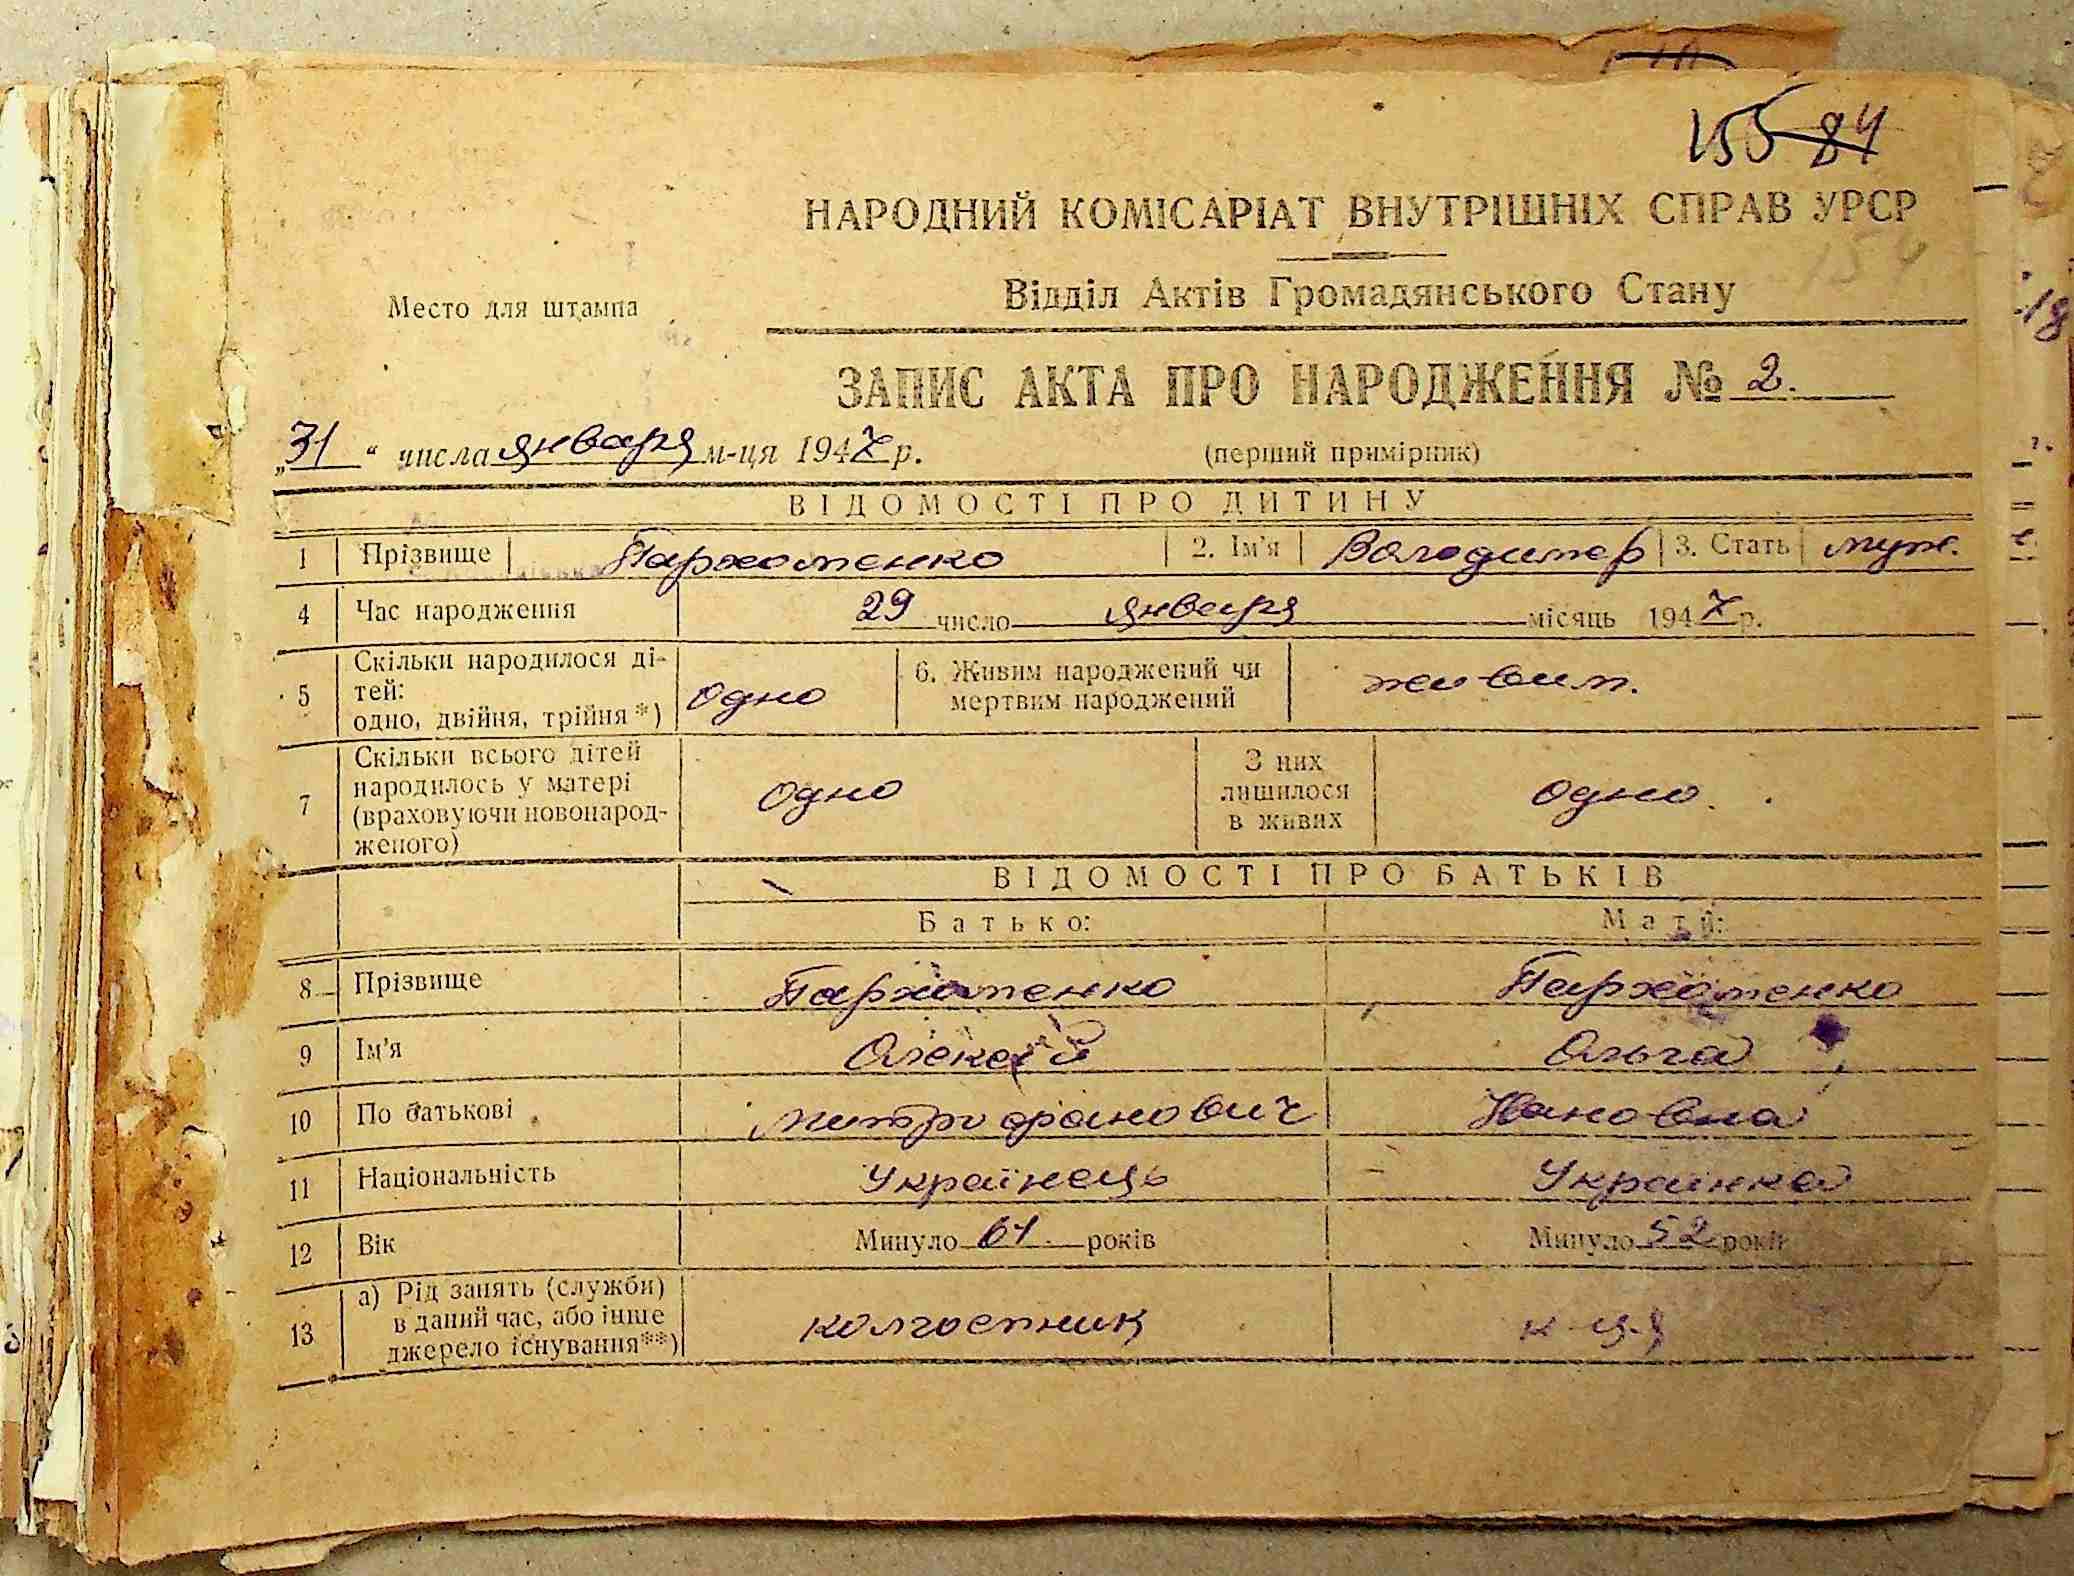 155 84
НАРОДНИЙ КОМІСАРІАТ ВНУТРІШНІХ СПРАВ УРСР
154
Місто для штампа
Відділ Актів Громадянського Стану
ЗАПИС АКТА ПРО НАРОДЖЕННЯ № 2.
„31“ числа января м-ця 1947 р. (перший примірник)
ВІДОМОСТІ ПРО ДИТИНУ
1 Прізвище Пархоменко 2. Ім'я Володимер 3. Стать муж.
4 Час народження 29 число января місяць 1947 р.
5 Скільки народилося ді-
тей:
одно, двійня, трійня*) одно 6. Живим народжений чи
мертвим народжений живим.
7 Скільки всього дітей
народилось у матері
(враховуючи новонарод-
женого) одно З них
лишилося
в живих одно.
ВІДОМОСТІ ПРО БАТЬКІВ
Батько: Мати:
8 Прізвище Пархоменко Пархоменко
9 Ім'я Олексій Ольга
10 По батькові Митрофанович Івановна
11 Національність Українець Украинка
12 Вік Минуло 61 років Минуло 52 років
13 а) Рід занять (служби)
в даний час, або інше
джерело існування**) колгоспник к-ця